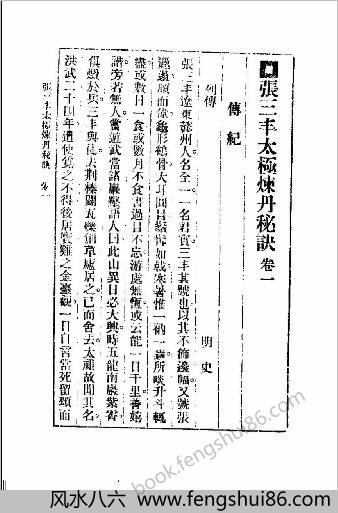 張三丰太極煉丹秘訣 卷一
傳紀
列傳 明史
張三丰遼東懿州人名全一一名君寶三丰其號也以其不飾邊幅又號張
邋遢頎而偉龜形鶴骨大耳圓目鬚髯如戟寒暑惟一衲一蓑所啖升斗輒
盡或數日一食或數月不食書過目不忘游處無恆或云能一日千里善嬉
諧旁若無人嘗遊武當諸巖壑語人曰此山異日必大興時五龍南巖紫霄
俱燬於兵三丰與其徒去荊榛闢瓦礫創草廬居之已而舍去太祖故聞其名
洪武二十四年遣使覓之不得後居寶雞之金臺觀一日自言當死留頌而
張三丰太極煉丹秘訣 卷一
book.fengshui86.com
风水八六 www.fengshui86.com